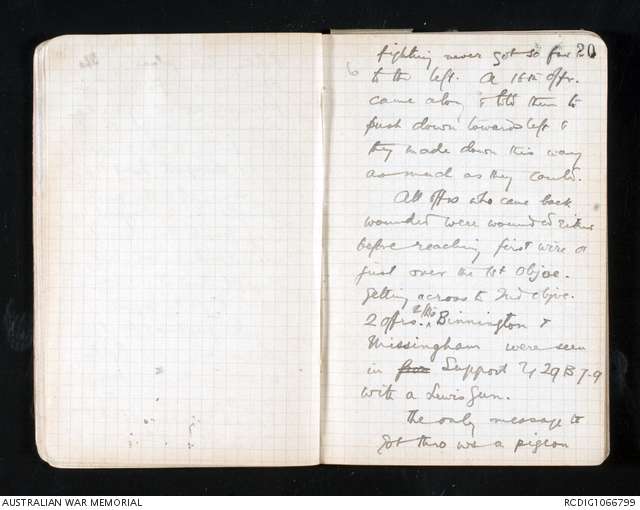 fighting never got so far 20
to the left. A 16th offr.
came along & told them to
push down towards left &
they made down this way
as much as they could.
All offrs who came back
wounded were wounded either
before reaching first wire or
just over the 1st Objve.
getting across to 2nd objve.
2 offrs. Binnington &
Missingham were seen
in Support 29 B 7.9
with a Lewis Gun.
The only message to
got thro was a pigeon
AUSTRALIAN WAR MEMORIAL
RCDIG1066799